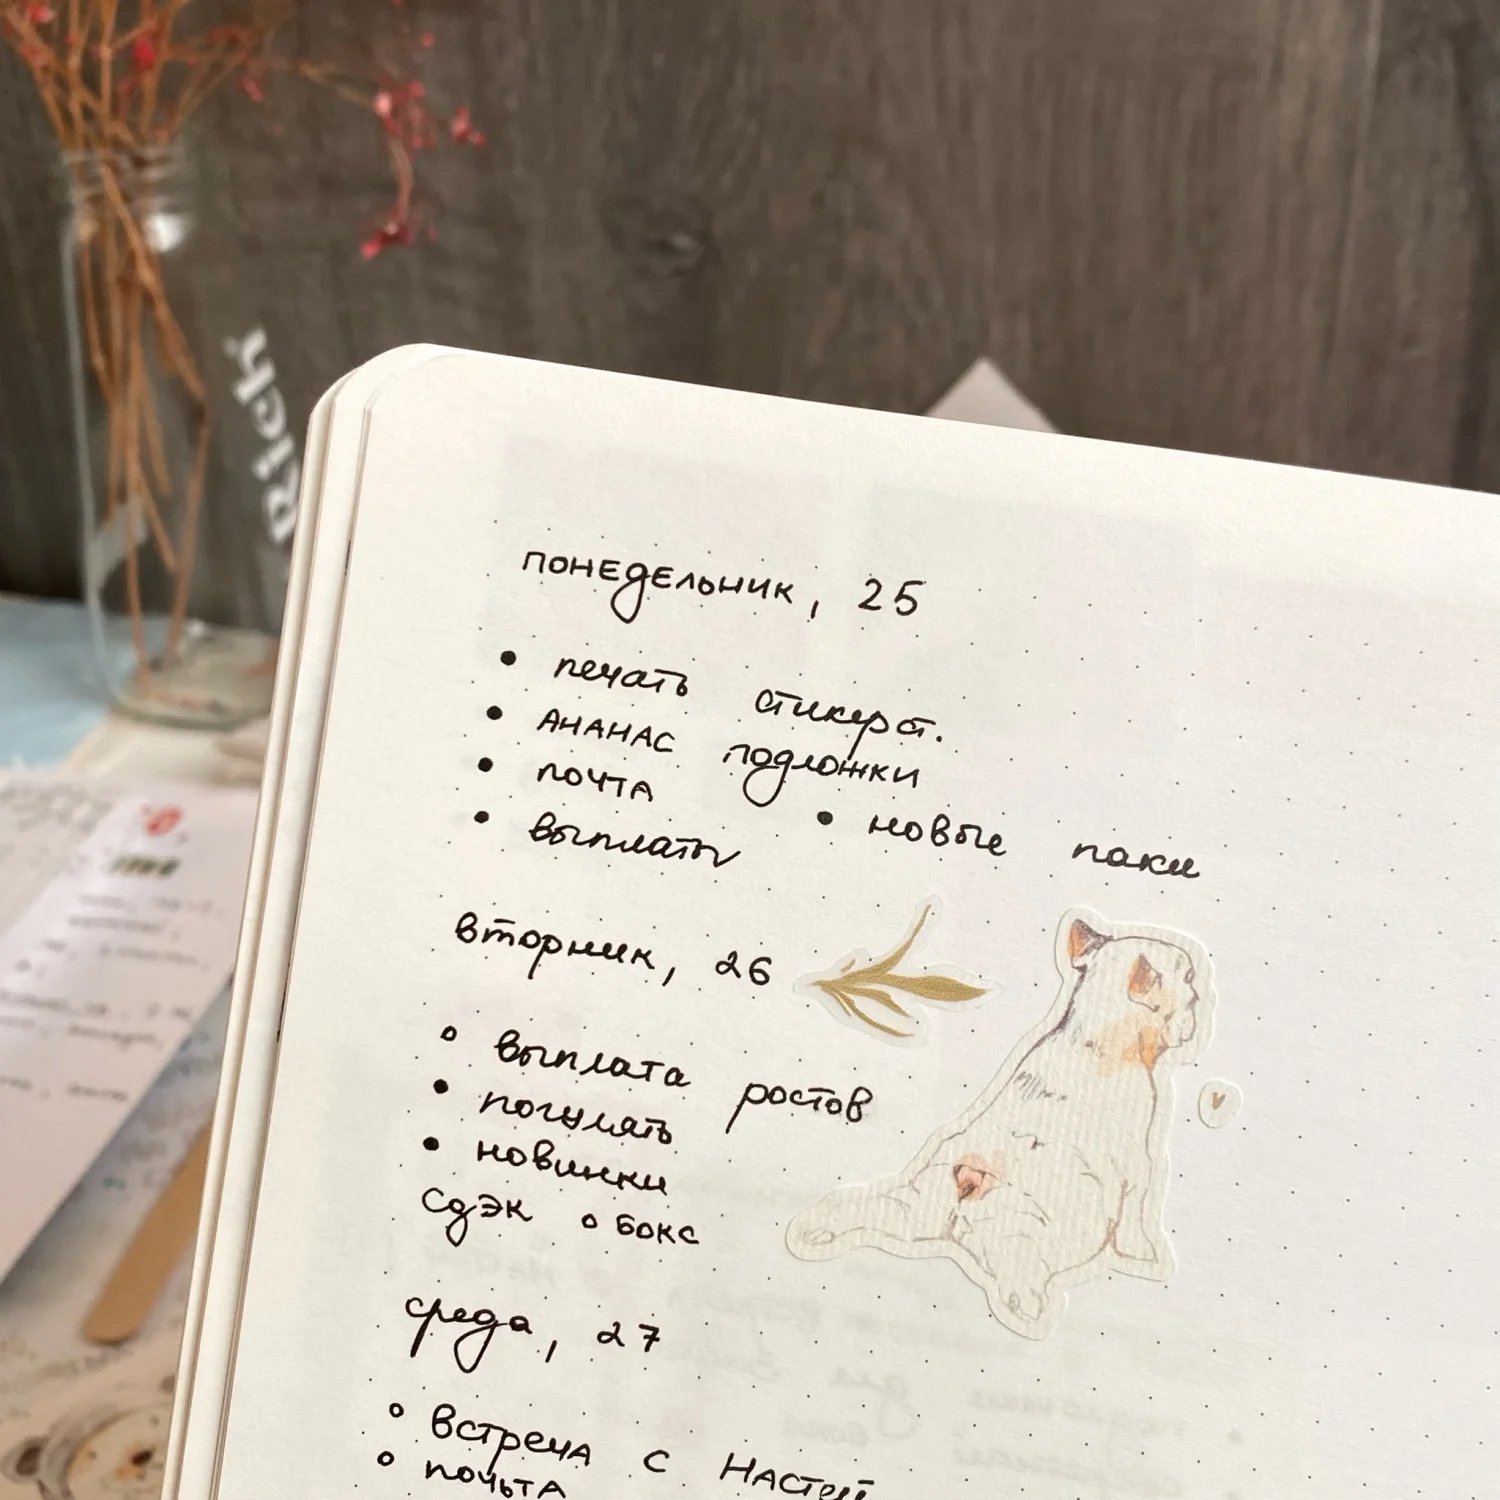 Rich
понедельник, 25
• печать стикерт.
• ананас подложки
• почта
• выплаты • новые паки
вторник, 26
∘ выплата ростов
• погулять
• новинки
сдэк ∘ бокс
среда, 27
∘ встреча с Настей
∘ почьта